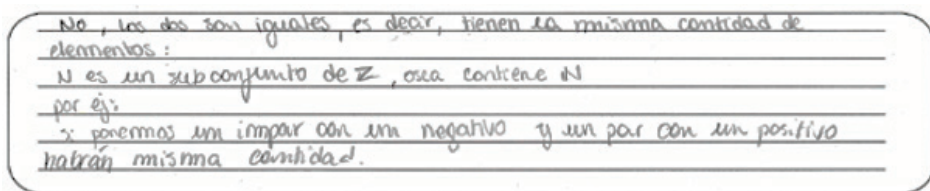 No, los dos son iguales, es decir, tienen la misma cantidad de
elementos:
N es un subconjunto de Z, osea contiene N
por ej:
si ponermos un impar con un negativo y un par con un positivo
habrán misma cantidad.